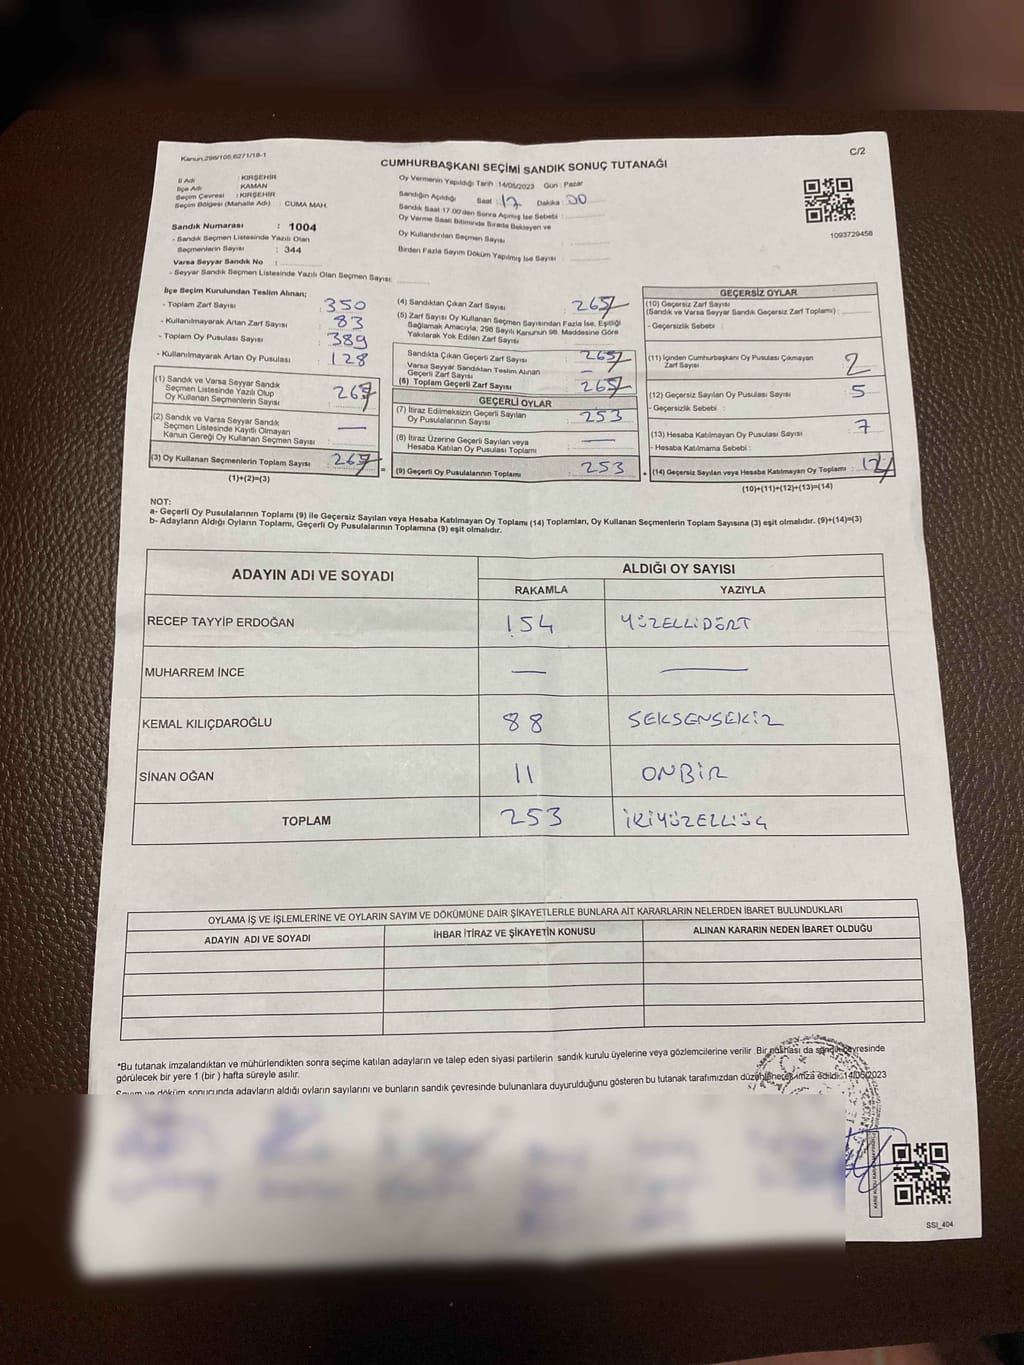 Kanun,298/105,6271/18-1
C/2
CUMHURBAŞKANI SEÇİMİ SANDIK SONUÇ TUTANAĞI
İl Adı : KIRŞEHİR
İlçe Adı : KAMAN
Seçim Çevresi : KIRŞEHİR
Seçim Bölgesi (Mahalle Adı) : CUMA MAH.
Sandık Numarası : 1004
- Sandık Seçmen Listesinde Yazılı Olan
Seçmenlerin Sayısı : 344
Varsa Seyyar Sandık No :
- Seyyar Sandık Seçmen Listesinde Yazılı Olan Seçmen Sayısı:
Oy Vermenin Yapıldığı Tarih : 14/05/2023 Gün : Pazar
Sandığın Açıldığı Saat : 17 Dakika : 00
Sandık Saat 17.00'den Sonra Açmış İse Sebebi :
Oy Verme Saati Bitiminde Sırada Bekleyen ve
Oy Kullandırılan Seçmen Sayısı :
Birden Fazla Sayım Döküm Yapılmış İse Sayısı :
1093729458
İlçe Seçim Kurulundan Teslim Alınan;
- Toplam Zarf Sayısı : 350
- Kullanılmayarak Artan Zarf Sayısı : 83
- Toplam Oy Pusulası Sayısı : 389
- Kullanılmayarak Artan Oy Pusulası : 128
(1) Sandık ve Varsa Seyyar Sandık
Seçmen Listesinde Yazılı Olup
Oy Kullanan Seçmenlerin Sayısı :
(2) Sandık ve Varsa Seyyar Sandık
Seçmen Listesinde Kayıtlı Olmayan
Kanun Gereği Oy Kullanan Seçmen Sayısı : —
(3) Oy Kullanan Seçmenlerin Toplam Sayısı :
(1)+(2)=(3)
(4) Sandıktan Çıkan Zarf Sayısı :
(5) Zarf Sayısı Oy Kullanan Seçmen Sayısından Fazla İse, Eşitliği
Sağlamak Amacıyla; 298 Sayılı Kanunun 98. Maddesine Göre
Yakılarak Yok Edilen Zarf Sayısı :
Sandıkta Çıkan Geçerli Zarf Sayısı :
Varsa Seyyar Sandıktan Teslim Alınan
Geçerli Zarf Sayısı : —
(6) Toplam Geçerli Zarf Sayısı :
GEÇERLİ OYLAR
(7) İtiraz Edilmeksizin Geçerli Sayılan
Oy Pusulalarının Sayısı : 253
(8) İtiraz Üzerine Geçerli Sayılan veya
Hesaba Katılan Oy Pusulası Toplamı : —
(9) Geçerli Oy Pusulalarının Toplamı : 253
GEÇERSİZ OYLAR
(10) Geçersiz Zarf Sayısı
(Sandık ve Varsa Seyyar Sandık Geçersiz Zarf Toplamı) :
- Geçersizlik Sebebi :
(11) İçinden Cumhurbaşkanı Oy Pusulası Çıkmayan
Zarf Sayısı : 2
(12) Geçersiz Sayılan Oy Pusulası Sayısı : 5
- Geçersizlik Sebebi :
(13) Hesaba Katılmayan Oy Pusulası Sayısı : 7
- Hesaba Katılmama Sebebi :
(14) Geçersiz Sayılan veya Hesaba Katılmayan Oy Toplamı :
(10)+(11)+(12)+(13)=(14)
NOT:
a- Geçerli Oy Pusulalarının Toplamı (9) ile Geçersiz Sayılan veya Hesaba Katılmayan Oy Toplamı (14) Toplamları, Oy Kullanan Seçmenlerin Toplam Sayısına (3) eşit olmalıdır. (9)+(14)=(3)
b- Adayların Aldığı Oyların Toplamı, Geçerli Oy Pusulalarının Toplamına (9) eşit olmalıdır.
ADAYIN ADI VE SOYADI ALDIĞI OY SAYISI
RAKAMLA YAZIYLA
RECEP TAYYİP ERDOĞAN 154 YÜZELLİDÖRT
MUHARREM İNCE — —
KEMAL KILIÇDAROĞLU 88 SEKSENSEKİZ
SİNAN OĞAN 11 ONBİR
TOPLAM 253 İKİYÜZELLİÜÇ
OYLAMA İŞ VE İŞLEMLERİNE VE OYLARIN SAYIM VE DÖKÜMÜNE DAİR ŞİKAYETLERLE BUNLARA AİT KARARLARIN NELERDEN İBARET BULUNDUKLARI
ADAYIN ADI VE SOYADI İHBAR İTİRAZ VE ŞİKAYETİN KONUSU ALINAN KARARIN NEDEN İBARET OLDUĞU
*Bu tutanak imzalandıktan ve mühürlendikten sonra seçime katılan adayların ve talep eden siyasi partilerin sandık kurulu üyelerine veya gözlemcilerine verilir. Bir nüshası da sandık çevresinde
görülecek bir yere 1 (bir ) hafta süreyle asılır.
Sayım ve döküm sonucunda adayların aldığı oyların sayılarını ve bunların sandık çevresinde bulunanlara duyurulduğunu gösteren bu tutanak tarafımızdan düzenlenerek imza edildi. 14/05/2023
SSI_404